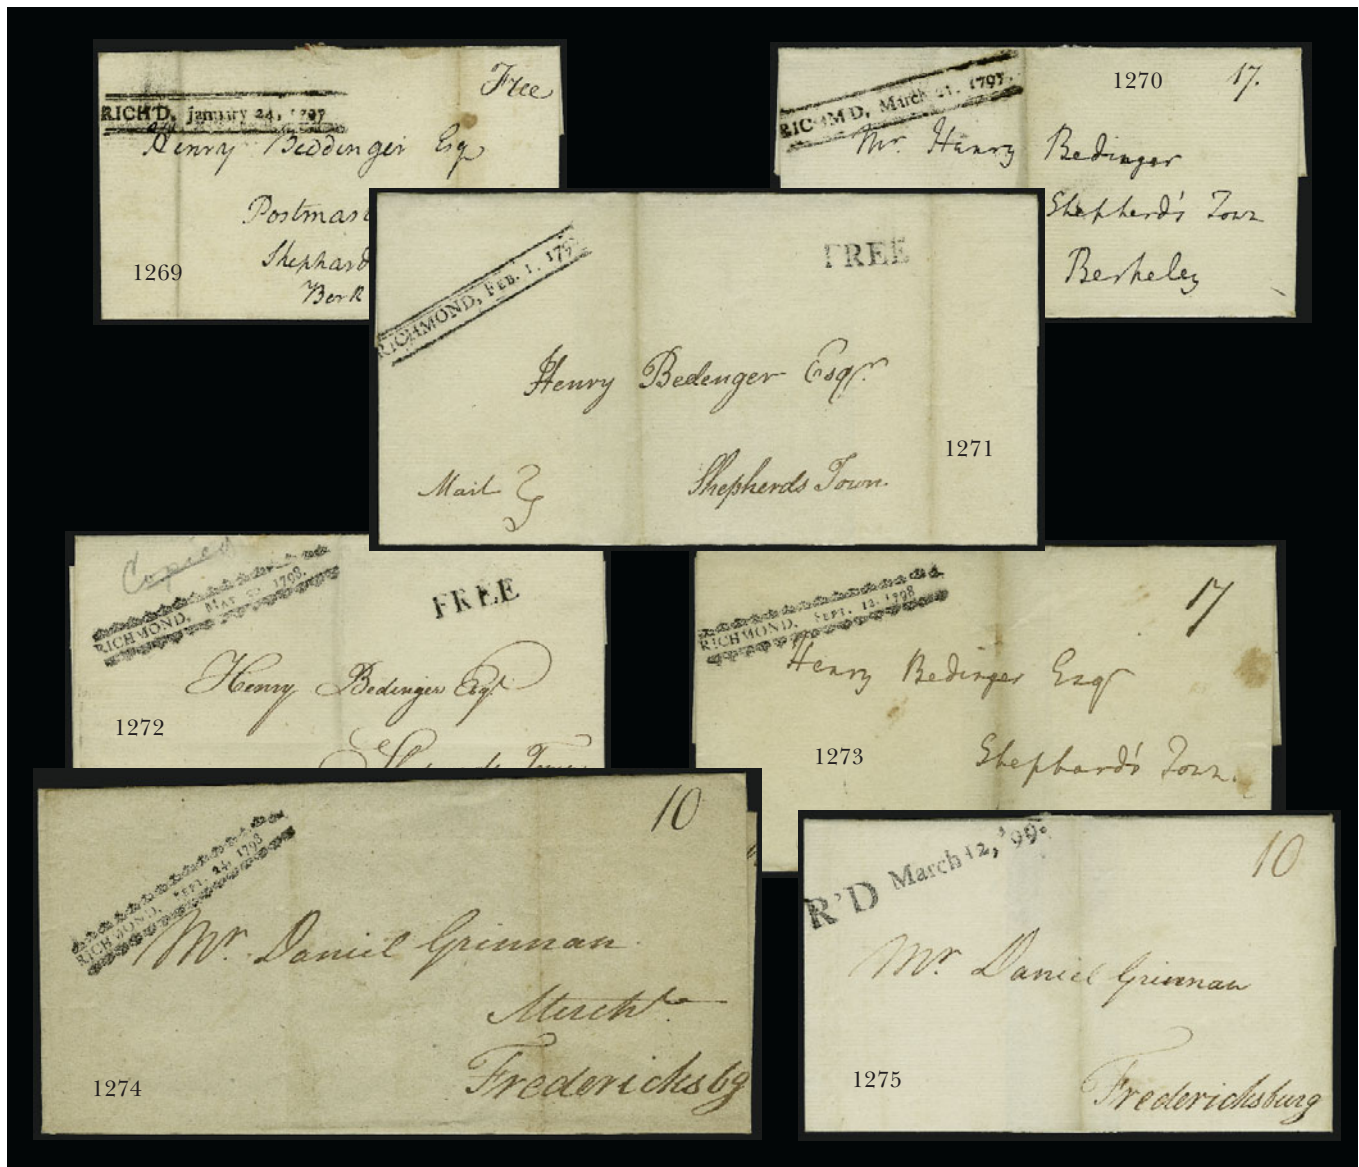 RICH'D, January 24, 1797
Free
Henry Beddinger Esq
Postmast
Shephard
Berk
1269
RICHM'D, March 21, 1797.
1270
17.
Mr. Henry Bedinger
Shepherd's Town
Berkeley
RICHMOND, FEB. 1, 179
FREE
Henry Bedenger Esqr.
1271
Mail
Shepherds Town.
Copied
RICHMOND, MAY 1798.
FREE
Henry Bedinger Esqr
1272
RICHMOND, SEPT. 12, 1798
17
Henry Bedinger Esqr
1273
Shephard's Town.
RICHMOND, SEPT. 24, 1798
10
Mr. Daniel Grinnan
Mercht.
Fredericksbg
1274
R'D March 12, '99.
10
Mr. Daniel Grinnan
1275
Fredericksburg